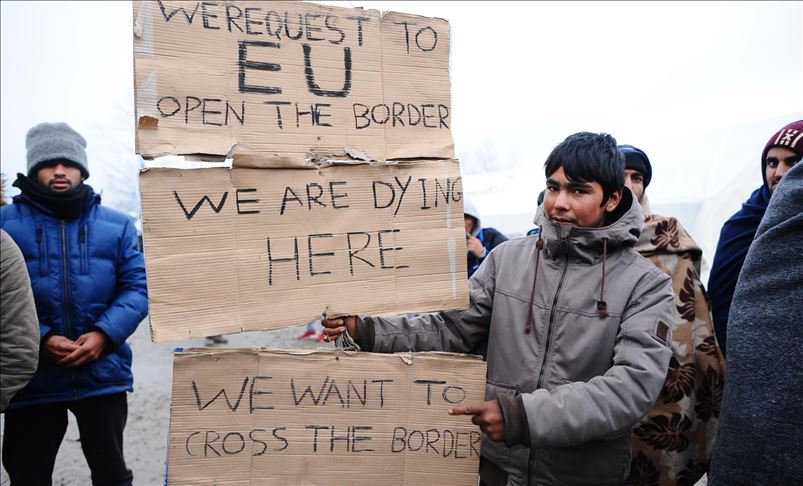 WEREQUEST TO
EU
OPEN THE BORDER
WE ARE DYING
HERE
WE WANT TO
CROSS THE BORDER